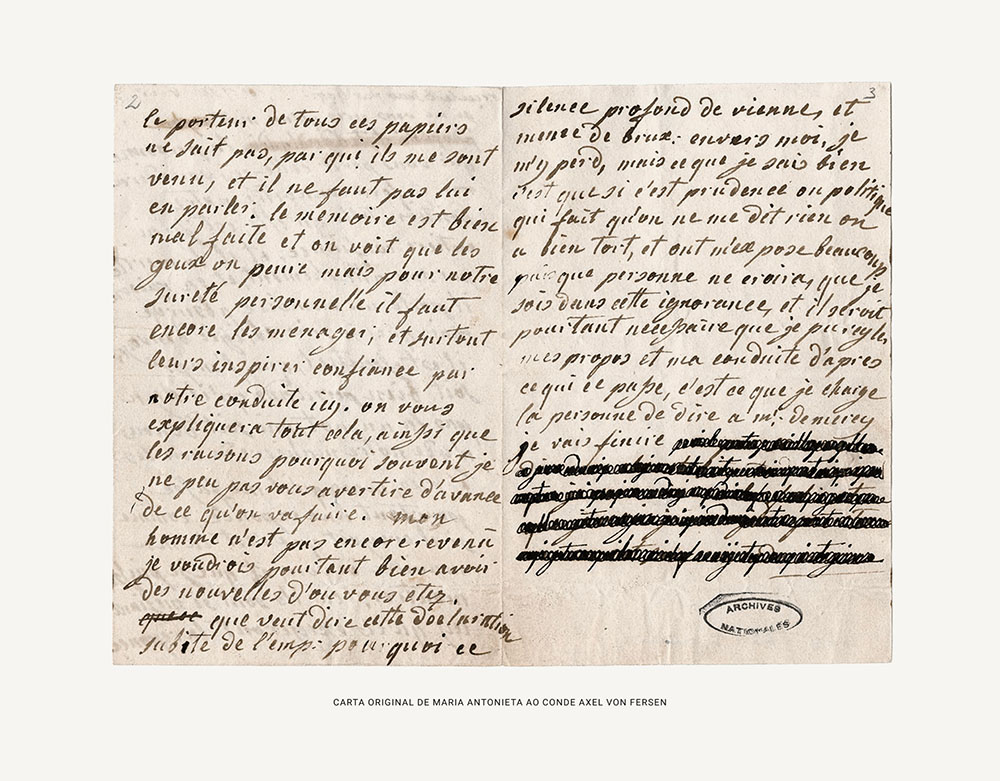 2
le porteur de tous ces papiers
ne sait pas, par qui ils me sont
venu, et il ne faut pas lui
en parler. le mémoire est bien
mal faite et on voit que les
geux on peure mais pour notre
sureté personnelle il faut
encore les menager, et surtout
leurs inspirer confiance par
notre conduite icy. on vous
expliquera tout cela, ainsi que
les raisons pourquoi souvent je
ne peu pas vous avertire d'avance
de ce qu'on va faire. mon
homme n'est pas encore revenu
je voudrois pourtant bien avoir
des nouvelles d'ou vous etez.
que veut dire cette declaration
subite de l'emp: pourquoi ce
3
silence profond de vienne, et
meme de brux: envers moi, je
m'y perd, mais ce que je sais bien
c'est que si c'est prudence ou politique
qui fait qu'on ne me dit rien on
a bien tort, et ont m'ex pose beaucoup
puisque personne ne croira, que je
sois dans cette ignorance, et il seroit
pourtant necessaire que je puregler
mes propos et ma conduite d'apres
ce qui ce passe, c'est ce que je charge
la personne de dire a mr: demercy
je vais finire
ARCHIVES
NATIONALES
CARTA ORIGINAL DE MARIA ANTONIETA AO CONDE AXEL VON FERSEN